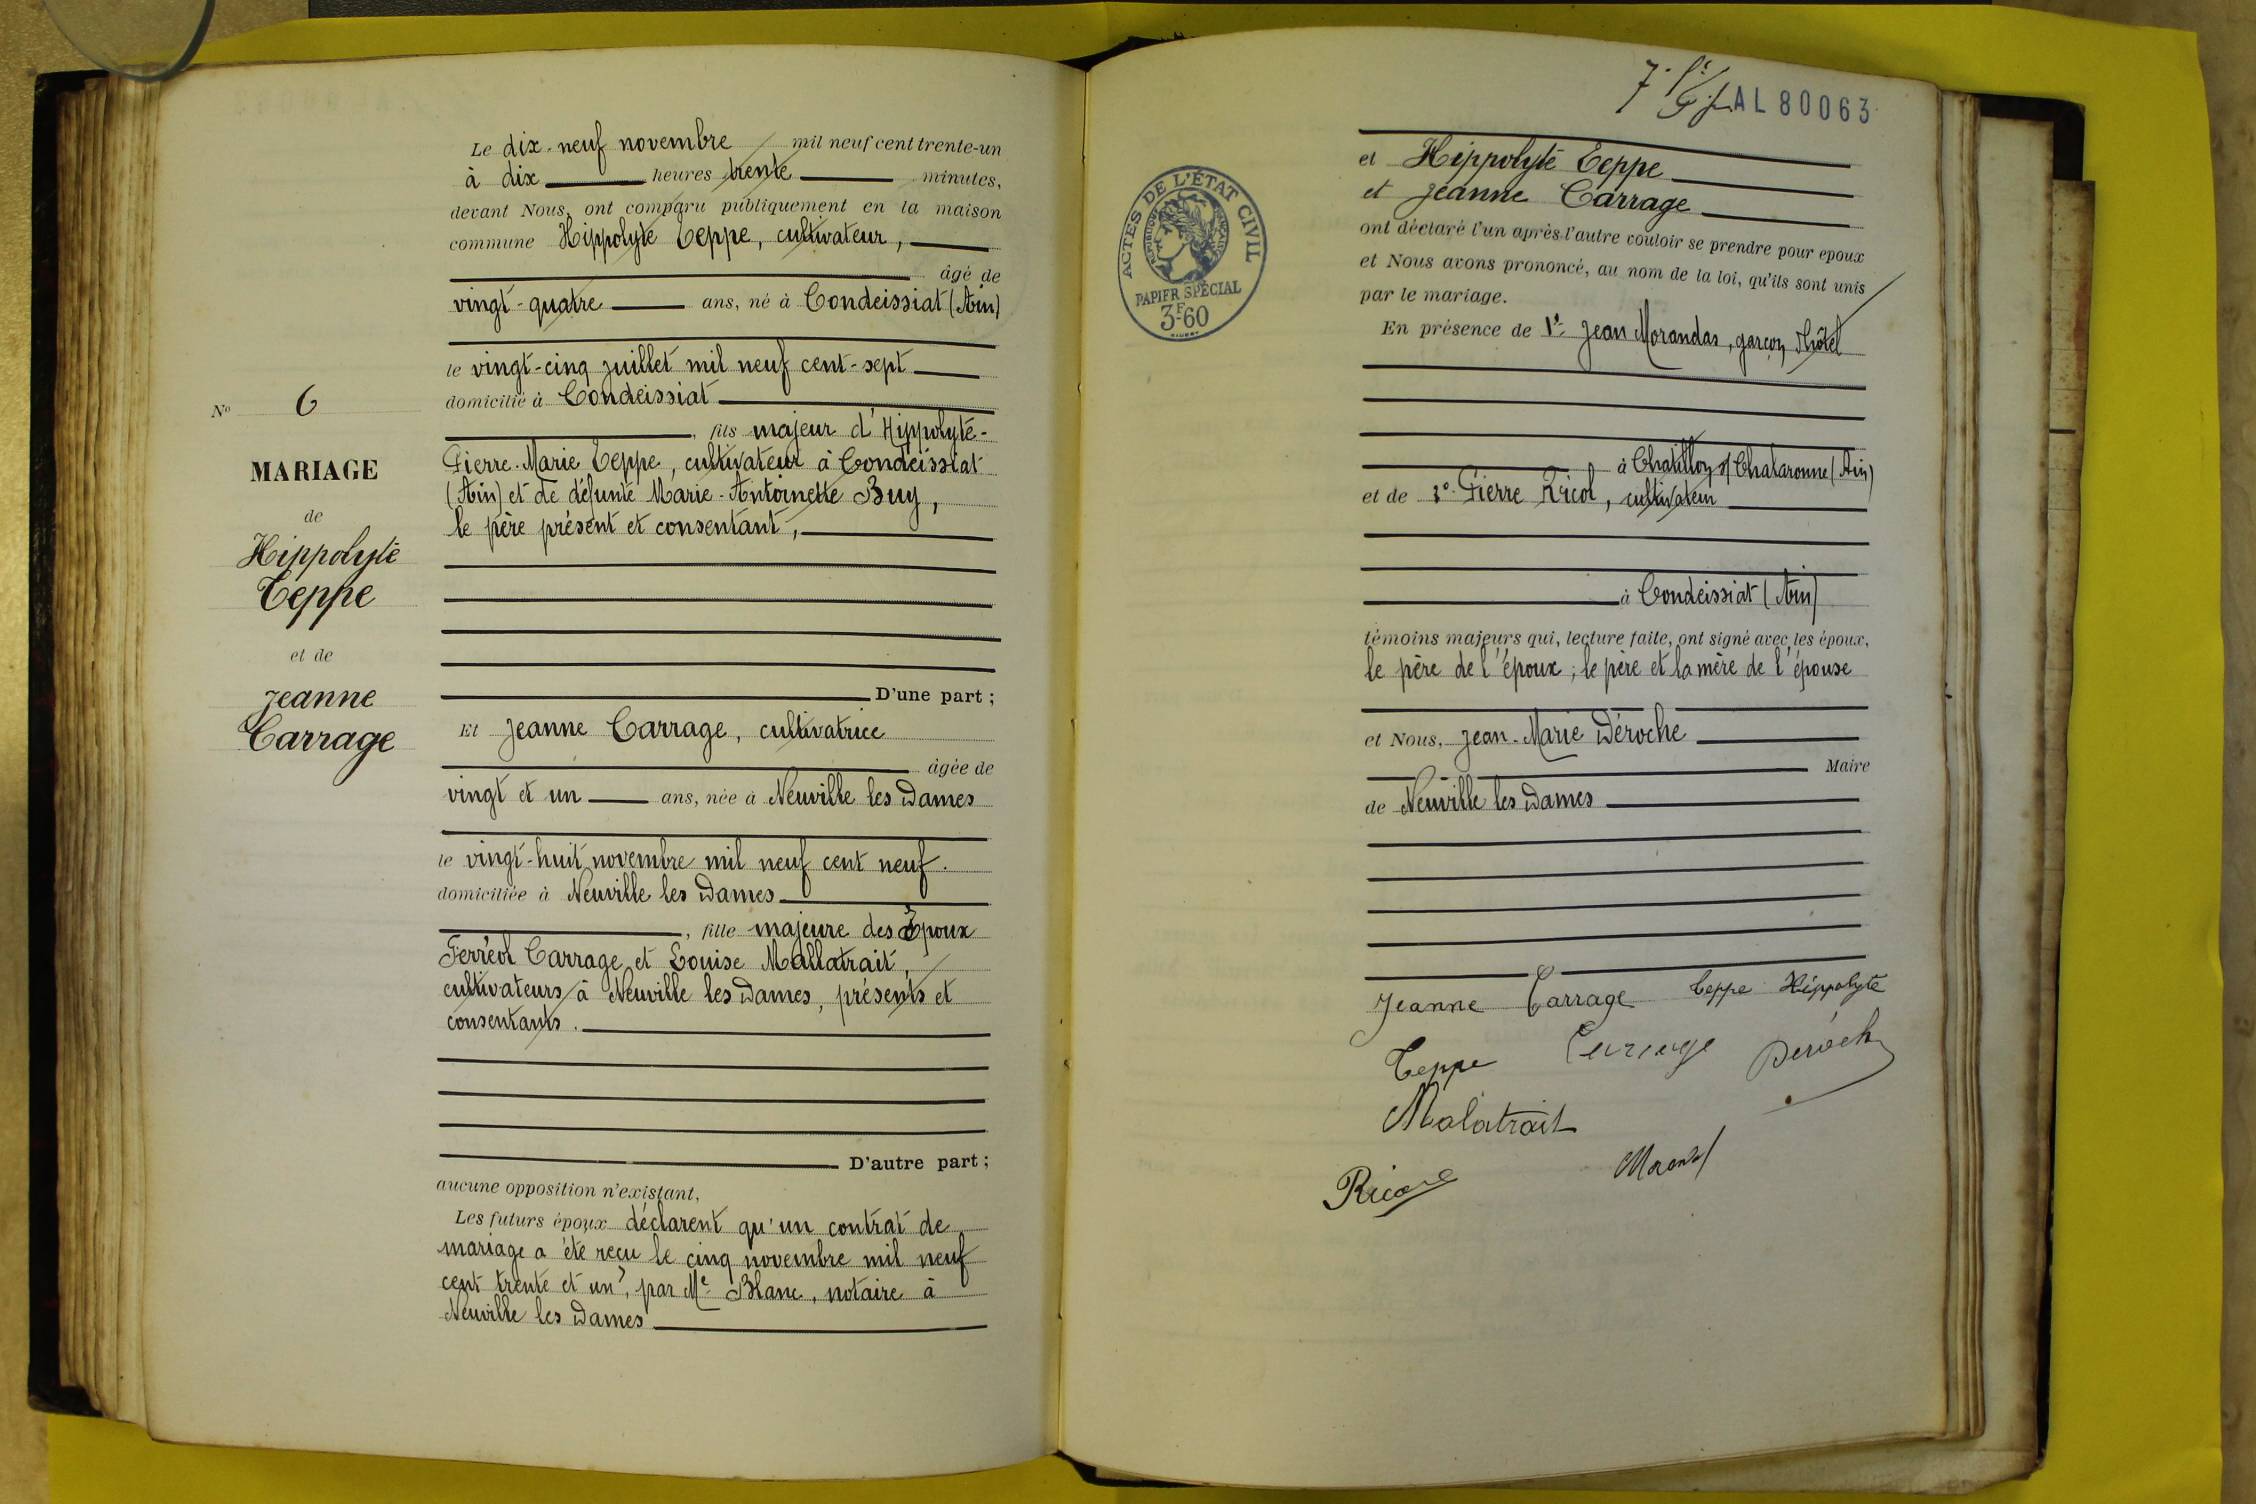 Le dix-neuf novembre mil neuf cent trente-un
à dix heures trente minutes,
devant Nous, ont comparu publiquement en la maison
commune Hippolyte Teppe, cultivateur,
âgé de
vingt-quatre ans, né à Condeissiat (Ain)
le vingt-cinq juillet mil neuf cent-sept
domicilié à Condeissiat
, fils majeur d'Hippolyte-
Pierre-Marie Teppe, cultivateur à Condeissiat
(Ain) et de défunte Marie-Antoinette Buy,
le père présent et consentant,
D'une part ;
Et Jeanne Carrage, cultivatrice
âgée de
vingt et un ans, née à Neuville les Dames
le vingt-huit novembre mil neuf cent neuf.
domiciliée à Neuville les Dames
, fille majeure des Epoux
Ferréol Carrage et Louise Mallatrait,
cultivateurs à Neuville les Dames, présents et
consentants.
D'autre part ;
aucune opposition n'existant,
Les futurs époux déclarent qu'un contrat de
mariage a été reçu le cinq novembre mil neuf
cent trente et un, par Me Blanc, notaire à
Neuville les Dames
No 6
MARIAGE
de
Hippolyte
Teppe
et de
Jeanne
Carrage
AL 80063
ACTES DE L'ÉTAT CIVIL
RÉPUBLIQUE FRANÇAISE
PAPIER SPÉCIAL
3F60
et Hippolyte Teppe
et Jeanne Carrage
ont déclaré l'un après l'autre vouloir se prendre pour epoux
et Nous avons prononcé, au nom de la loi, qu'ils sont unis
par le mariage.
En présence de 1° Jean Morandas, garçon d'hôtel
à Chatillon s/ Chalaronne (Ain)
et de 2° Pierre Ricol, cultivateur
à Condeissiat (Ain)
témoins majeurs qui, lecture faite, ont signé avec les époux,
le père de l'époux ; le père et la mère de l'épouse
et Nous, Jean-Marie Déroche
Maire
de Neuville les Dames
Jeanne Carrage Teppe Hippolyte
Teppe Carrage Déroch
Malatrait